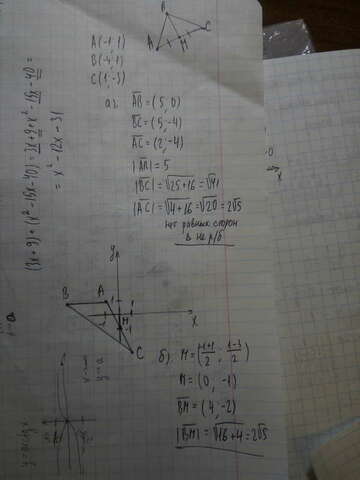 B
A
M
C
A(-1; 1)
B(-4; 1)
C(1; -3)
а)
AB = (5, 0)
BC = (5; -4)
AC = (2; -4)
|AB| = 5
|BC| = √25+16 = √41
|AC| = √4+16 = √20 = 2√5
нет равных сторон
не р/б
(3x+9)+(x²-15x-40)=3x+9+x²-15x-40=
= x²-12x-31
y
B
A
1
1
M
-1
x
C
б) M = (-1+1/2; 1-3/2)
M = (0, -1)
BM = (4; -2)
|BM| = √16+4 = 2√5
x
y=arctg x